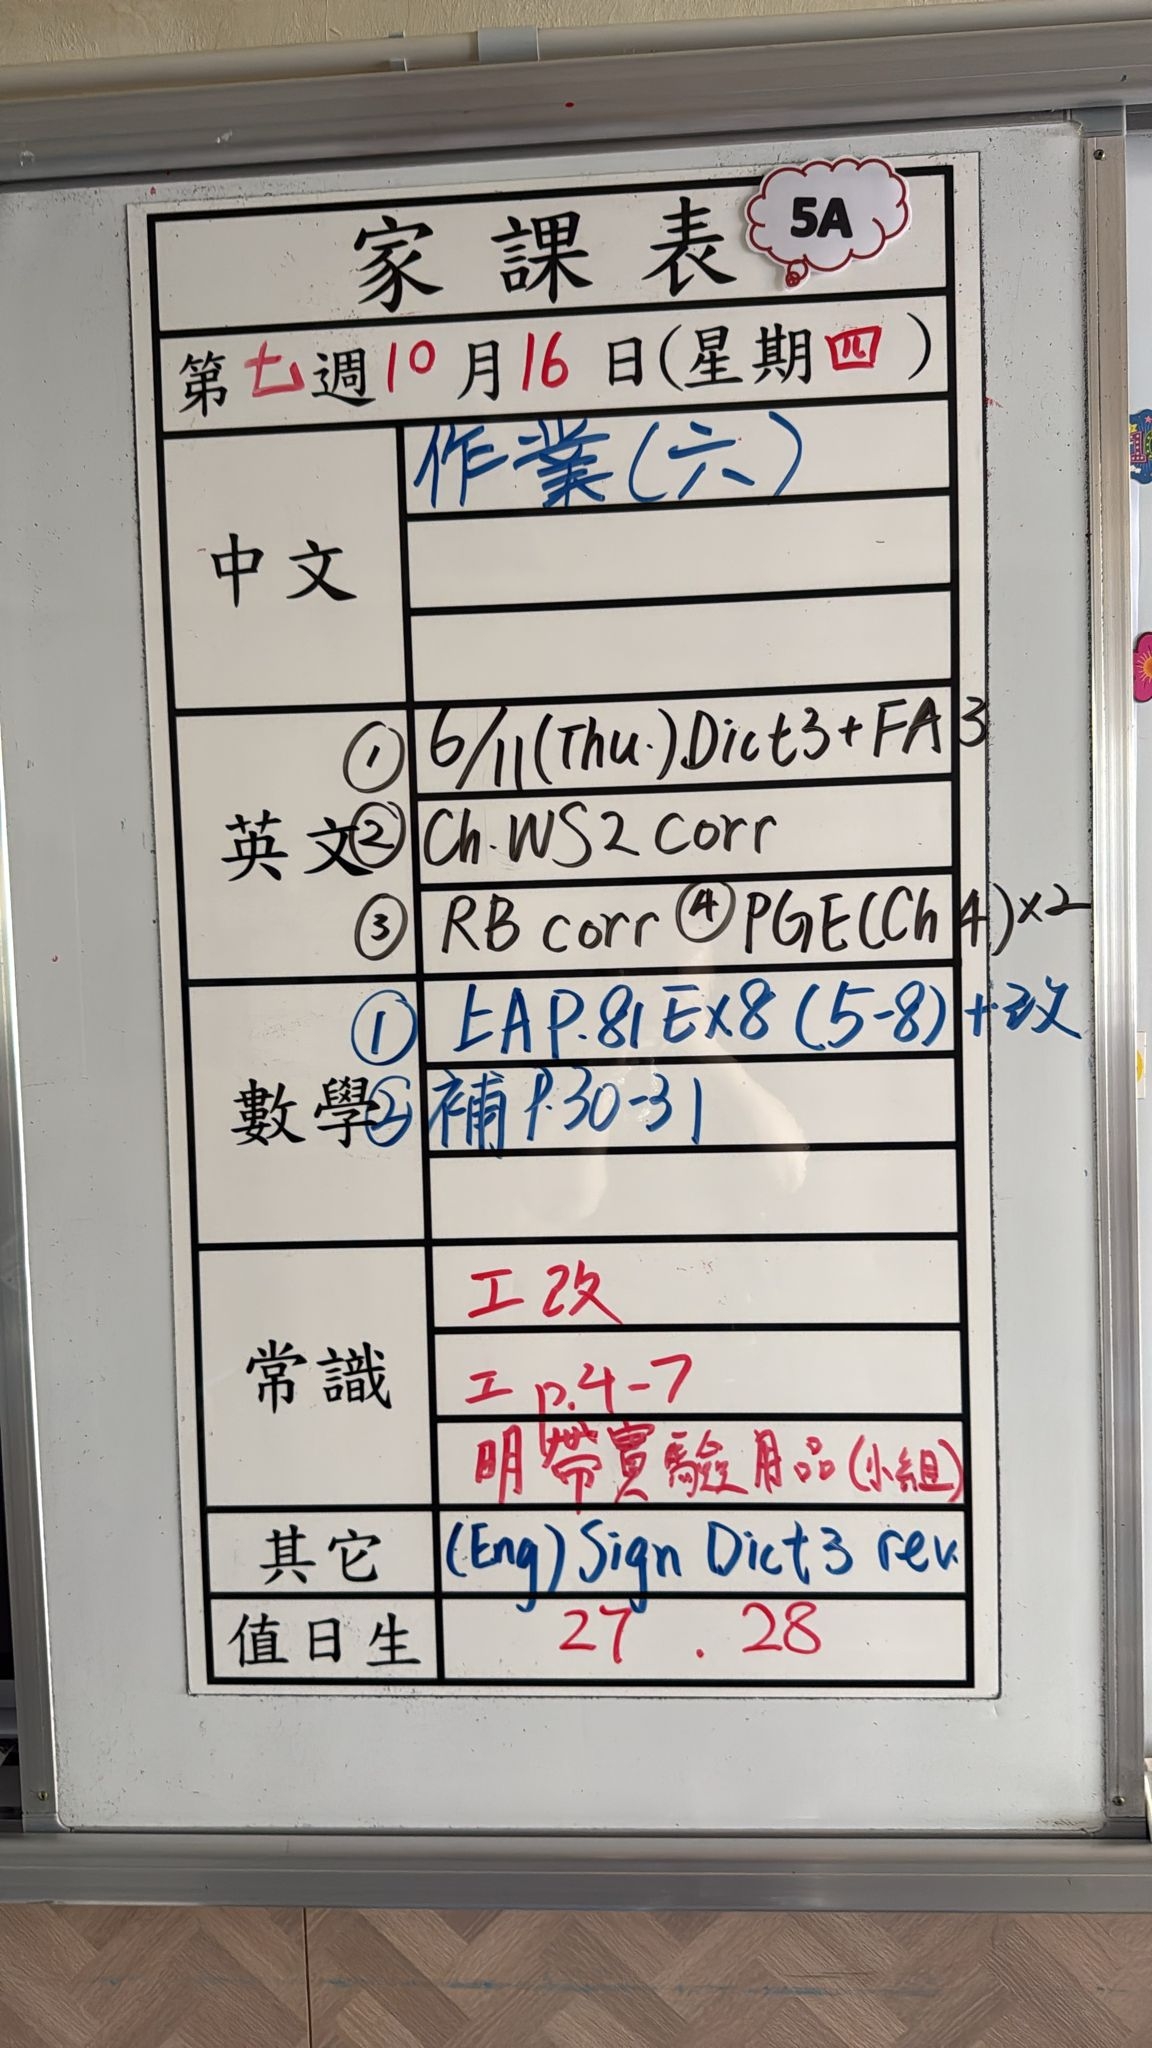 家課表 5A
第七週10月16日(星期四)
中文
作業(六)
英文
① 6/11(Thu.)Dict3+FA3
② Ch.WS2 corr
③ RB corr ④PGE(Ch4)×2
數學
① P.81 Ex8 (5-8)+改
② 補 P.30-31
常識
工改
工 p.4-7
明帶實驗用品(小組)
其它
(Eng) Sign Dict3 rev.
值日生
27 . 28